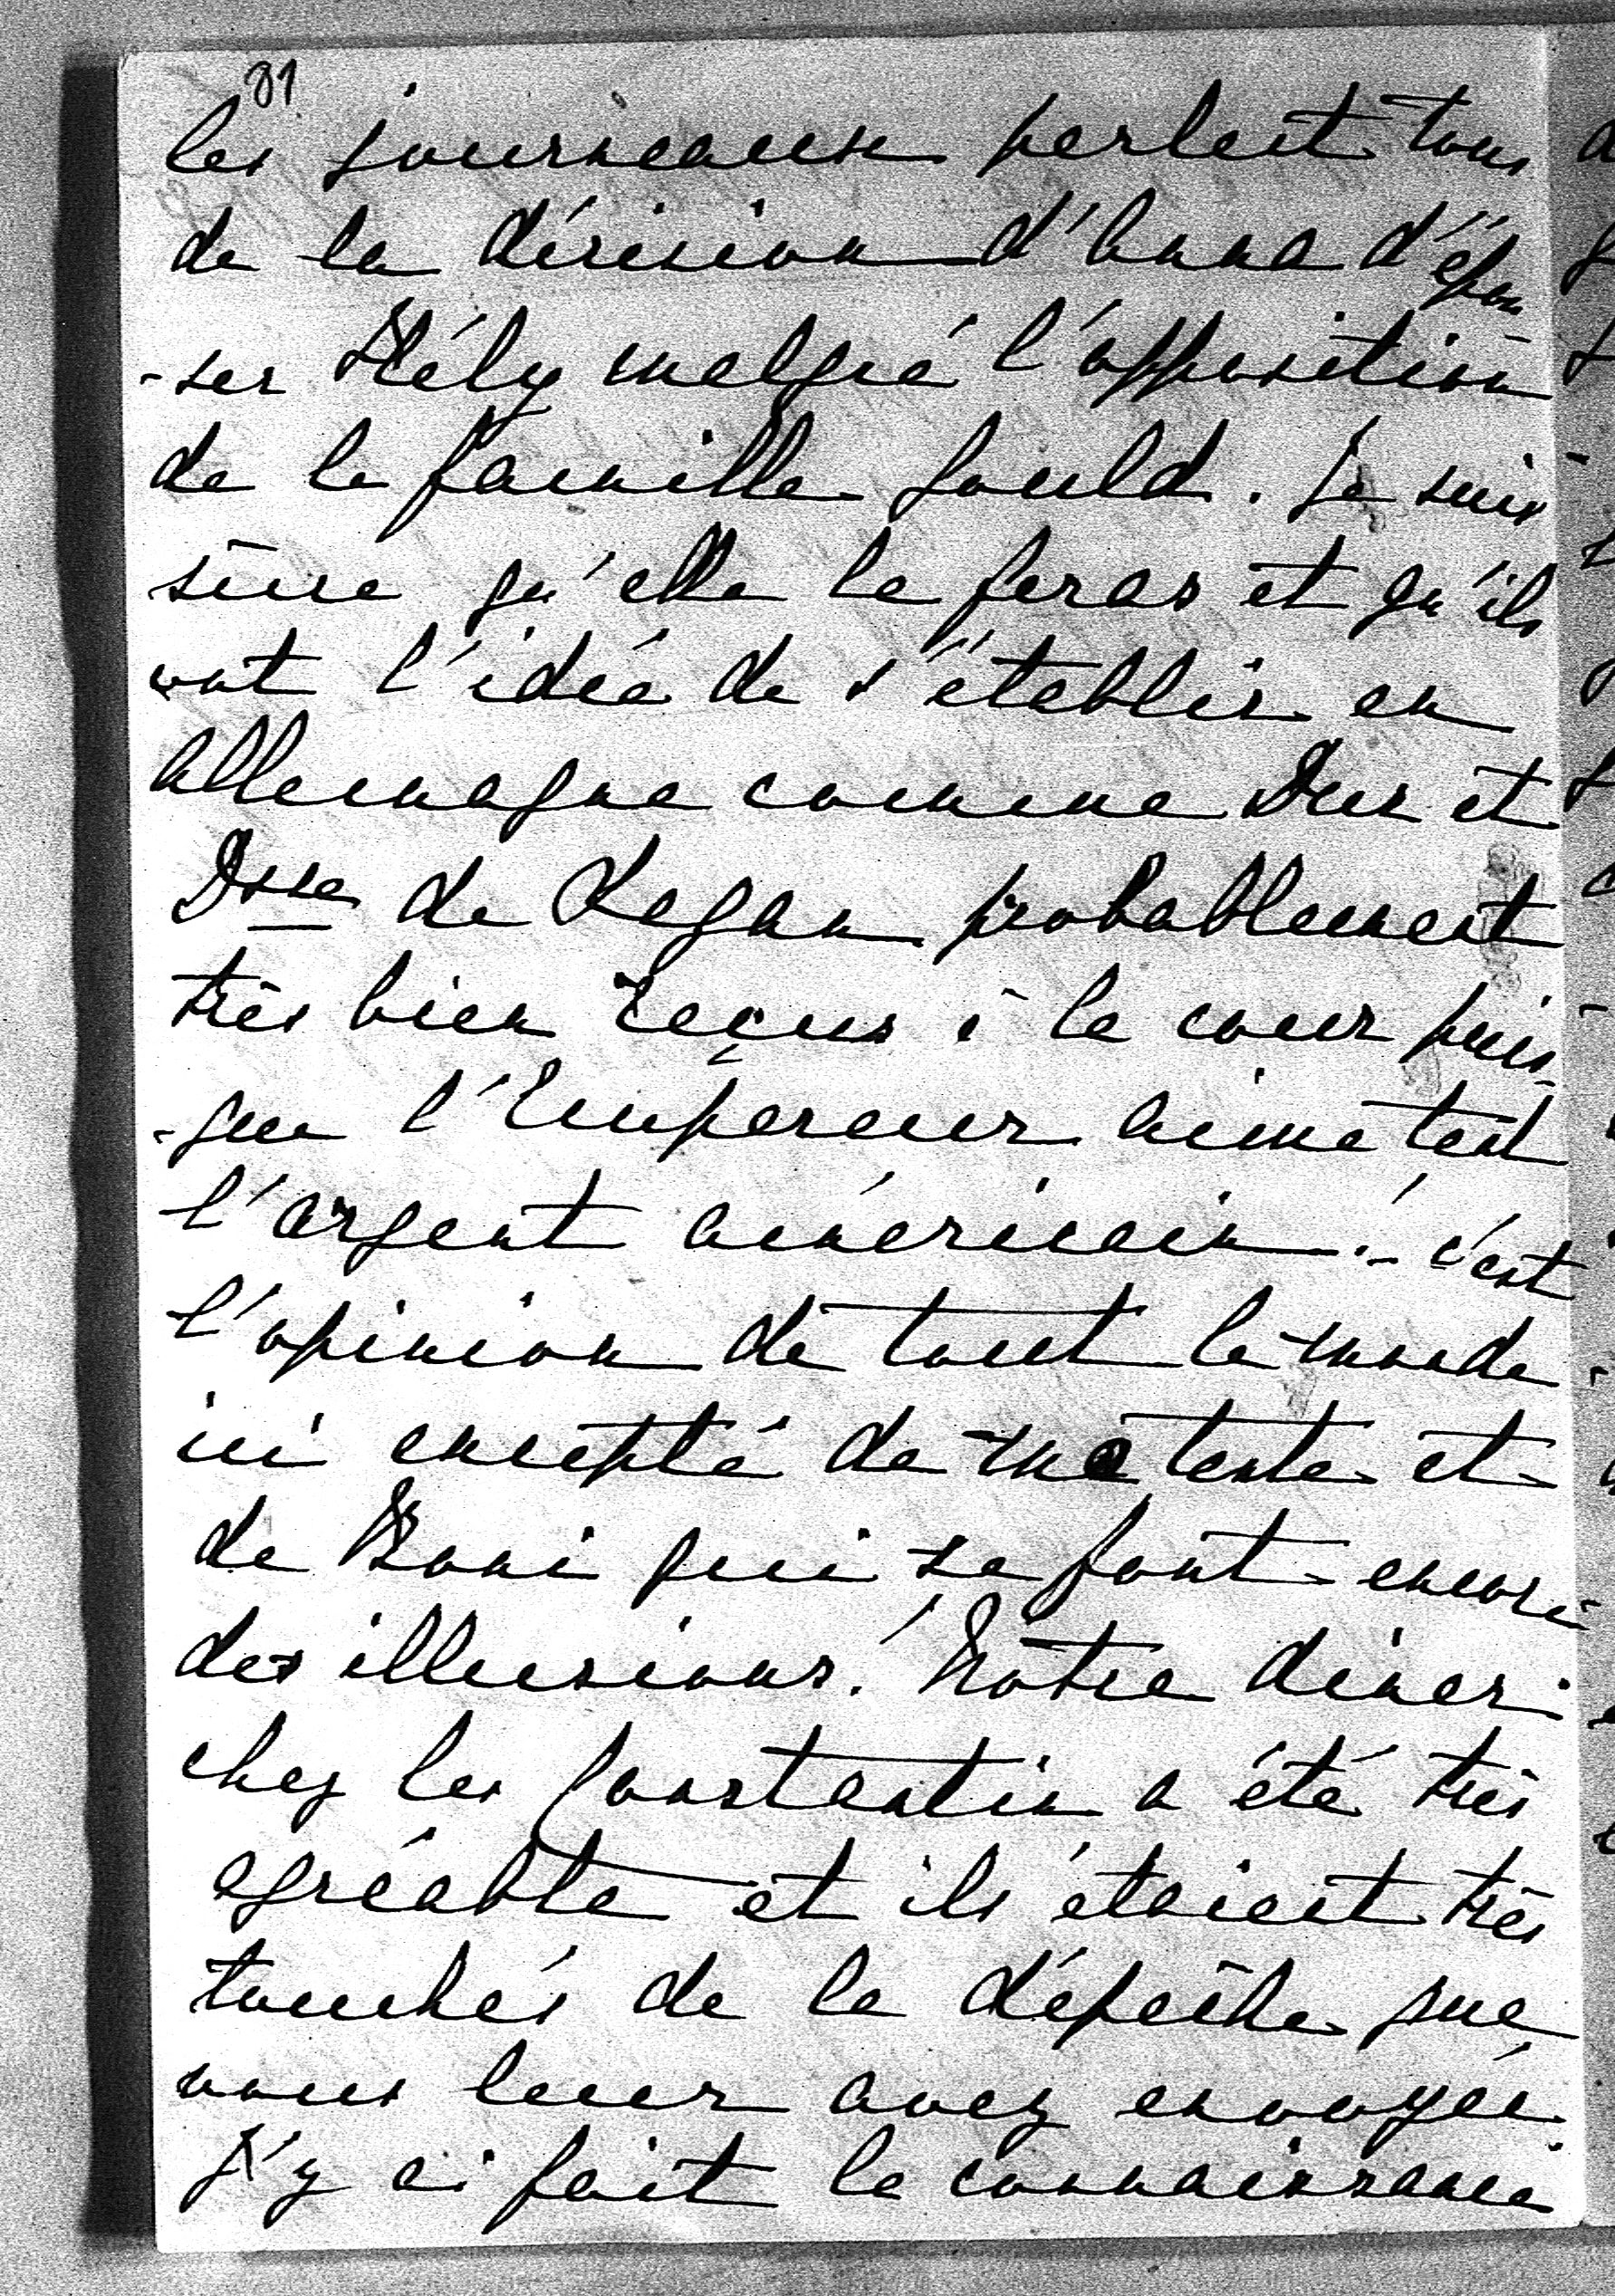 81
les journeaux parlent tous
de la décision d'Anna d'épou
-ser Hély malgré l'opposition
de la famille Gould. Je suis
sûre qu'elle le feras et qu'ils
ont l'idée de s'établir en
Allemagne comme Duc et
Dsse de Sagan probablement
très bien reçus à la cour puis
-que l'Empereur aime tant
l'argent américain! - c'est
l'opinion de tout le monde
ici excepté de ma tante et
de Boni qui se font encore
des illusions! Notre diner
chez les Constantin a été très
agréable et ils étaient très
touchés de la dépêche que
vous leur avez envoyée.
J'y ai fait la connaissance